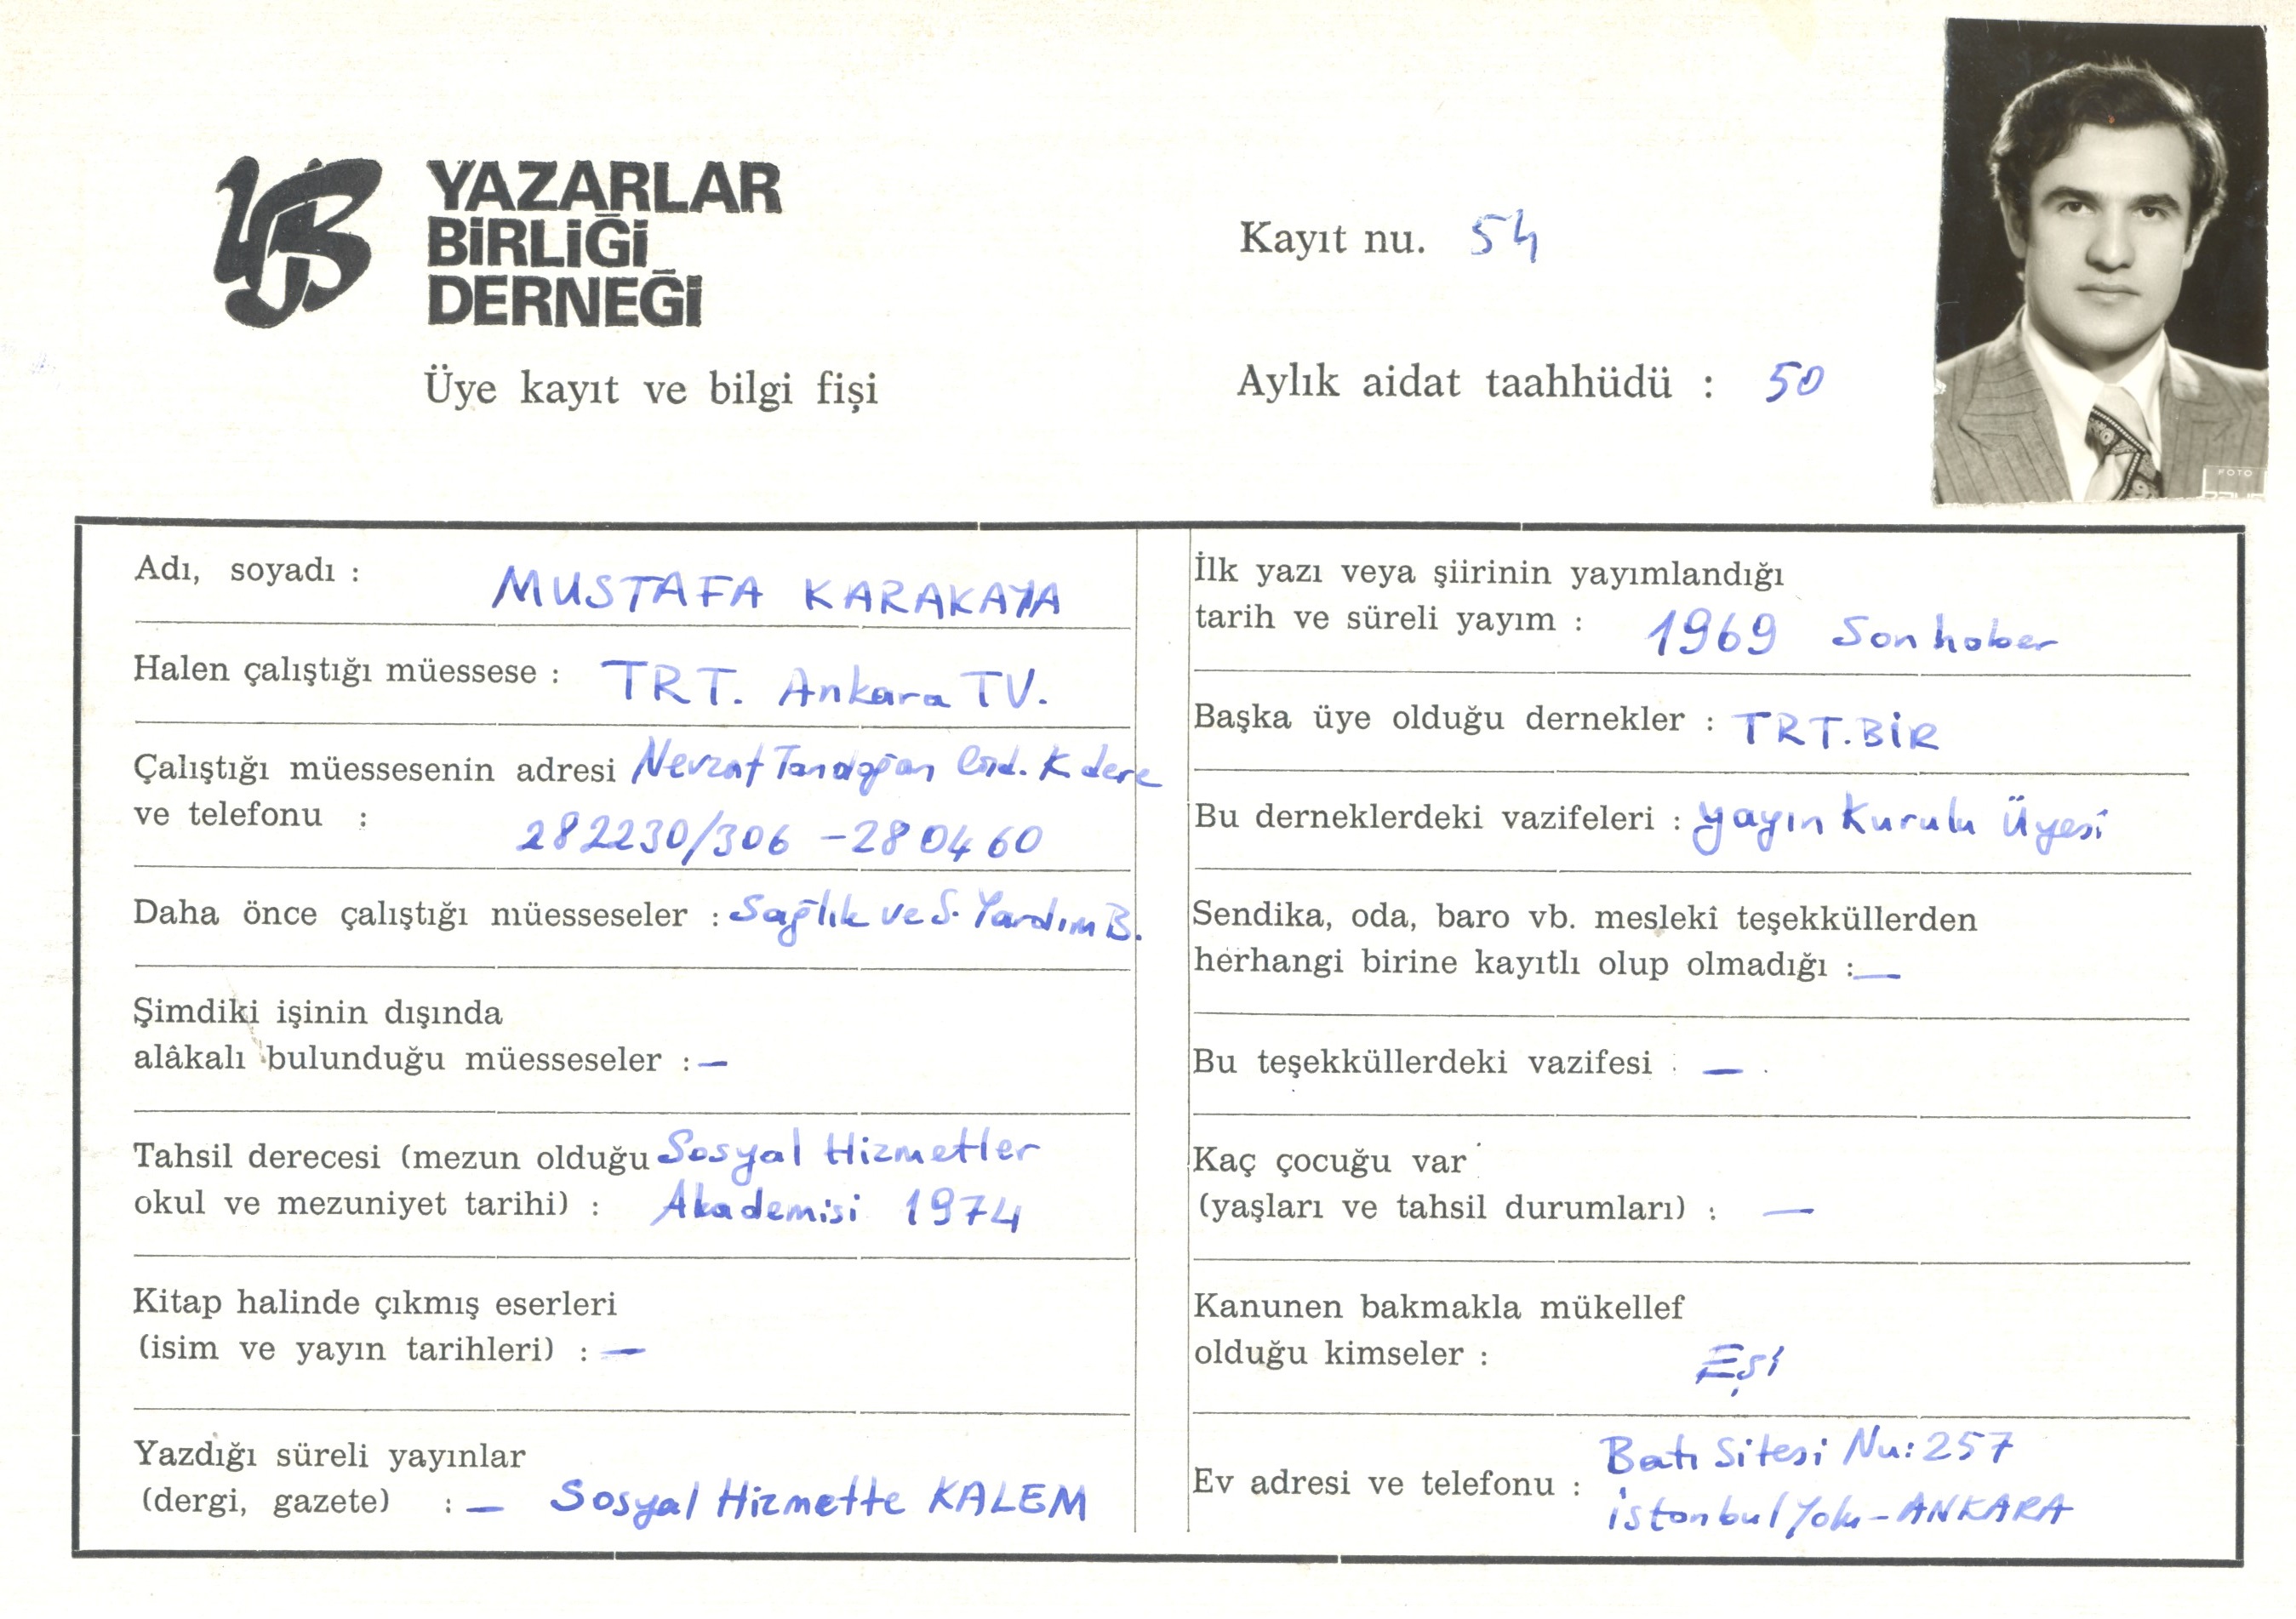 YAZARLAR
BİRLİĞİ
DERNEĞİ
Üye kayıt ve bilgi fişi
Kayıt nu. 54
Aylık aidat taahhüdü : 50
FOTO
Adı, soyadı : MUSTAFA KARAKAYA
Halen çalıştığı müessese : TRT. Ankara TV.
Çalıştığı müessesenin adresi Nevzat Tandoğan Cad. K dere
ve telefonu : 282230/306 - 280460
Daha önce çalıştığı müesseseler : Sağlık ve S. Yardım B.
Şimdiki işinin dışında
alâkalı bulunduğu müesseseler : —
Tahsil derecesi (mezun olduğu Sosyal Hizmetler
okul ve mezuniyet tarihi) : Akademisi 1974
Kitap halinde çıkmış eserleri
(isim ve yayın tarihleri) : —
Yazdığı süreli yayınlar
(dergi, gazete) : — Sosyal Hizmette KALEM
İlk yazı veya şiirinin yayımlandığı
tarih ve süreli yayım : 1969 Son haber
Başka üye olduğu dernekler : TRT.BİR
Bu derneklerdeki vazifeleri : yayın Kurulu Üyesi
Sendika, oda, baro vb. meslekî teşekküllerden
herhangi birine kayıtlı olup olmadığı : —
Bu teşekküllerdeki vazifesi : —
Kaç çocuğu var
(yaşları ve tahsil durumları) : —
Kanunen bakmakla mükellef
olduğu kimseler : Eşi
Batı Sitesi Nu: 257
Ev adresi ve telefonu :
İstanbul Yolu - ANKARA